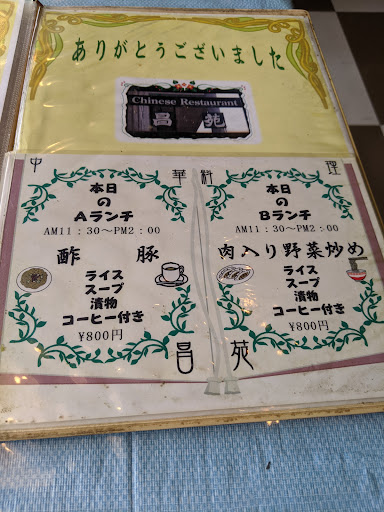 ありがとうございました
Chinese Restaurant
昌苑
中華料理
本日
の
Aランチ
AM11:30~PM2:00
酢豚
ライス
スープ
漬物
コーヒー付き
¥800円
本日
の
Bランチ
AM11:30~PM2:00
肉入り野菜炒め
ライス
スープ
漬物
コーヒー付き
¥800円
昌苑